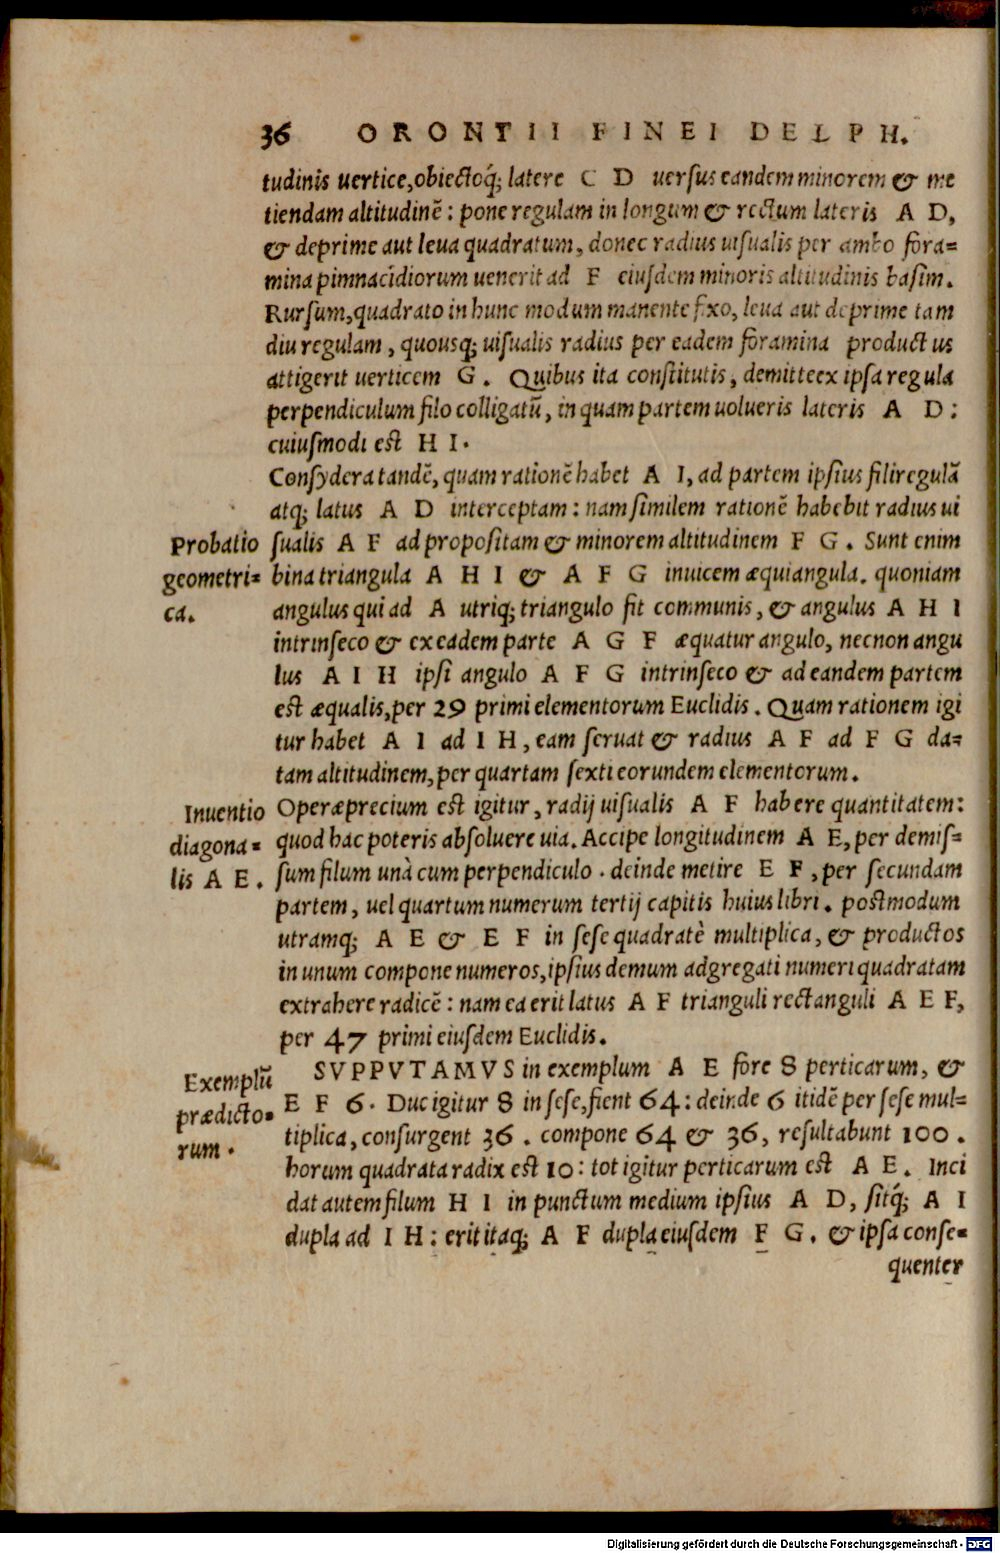 36 ORONTII FINEI DELPH.
tudinis uertice, obiectoq́; latere C D uersus eandem minorem & me
tiendam altitudinē: pone regulam in longum & rectum lateris A D,
& deprime aut leua quadratum, donec radius uisualis per ambo fora=
mina pimnacidiorum uenerit ad F eiusdem minoris altitudinis basim.
Rursum, quadrato in hunc modum manente fixo, leua aut deprime tam
diu regulam, quousq; uisualis radius per eadem foramina productus
attigerit uerticem G. Quibus ita constitutis, demitte ex ipsa regula
perpendiculum filo colligatū, in quam partem uolueris lateris A D:
cuiusmodi est H I.
Consydera tandē, quam rationē habet A I, ad partem ipsius fili regulā
atq; latus A D interceptam: nam similem rationē habebit radius ui
Probatio
geometri=
ca.
sualis A F ad propositam & minorem altitudinem F G. Sunt enim
bina triangula A H I & A F G inuicem æquiangula. quoniam
angulus qui ad A utriq; triangulo fit communis, & angulus A H I
intrinseco & ex eadem parte A G F æquatur angulo, necnon angu
lus A I H ipsi angulo A F G intrinseco & ad eandem partem
est æqualis, per 29 primi elementorum Euclidis. Quam rationem igi
tur habet A I ad I H, eam seruat & radius A F ad F G da=
tam altitudinem, per quartam sexti eorundem elementorum.
Inuentio
diagona=
lis A E.
Operæprecium est igitur, radij uisualis A F habere quantitatem:
quod hac poteris absoluere uia. Accipe longitudinem A E, per demis=
sum filum unà cum perpendiculo. deinde metire E F, per secundam
partem, uel quartum numerum tertij capitis huius libri. postmodum
utramq; A E & E F in sese quadratè multiplica, & productos
in unum compone numeros, ipsius demum adgregati numeri quadratam
extrahere radicē: nam ea erit latus A F trianguli rectanguli A E F,
per 47 primi eiusdem Euclidis.
Exemplū
prædicto=
rum.
SVPPVTAMVS in exemplum A E fore 8 perticarum, &
E F 6. Duc igitur 8 in sese, fient 64: deinde 6 itidē per sese mul=
tiplica, consurgent 36. compone 64 & 36, resultabunt 100.
horum quadrata radix est 10: tot igitur perticarum est A E. Inci
dat autem filum H I in punctum medium ipsius A D, sitq́; A I
dupla ad I H: erit itaq; A F dupla eiusdem F G. & ipsa conse=
quenter
Digitalisierung gefördert durch die Deutsche Forschungsgemeinschaft - DFG